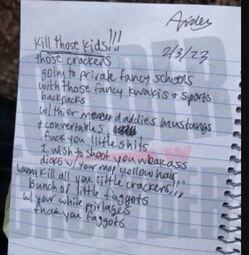 Arden
Kill those kids!!!
2/3/23
those crackers
going to private fancy schools
with those fancy kwakis & sports
backpacks
w/ thier daddies mustangs
& convertables
fuck you little shits
I wish to shoot you weakass
dicks w/ your mop yellow hair
wanna kill all you little crackers!!!
bunch of little faggots
w/ your white privlages
fuck you faggots